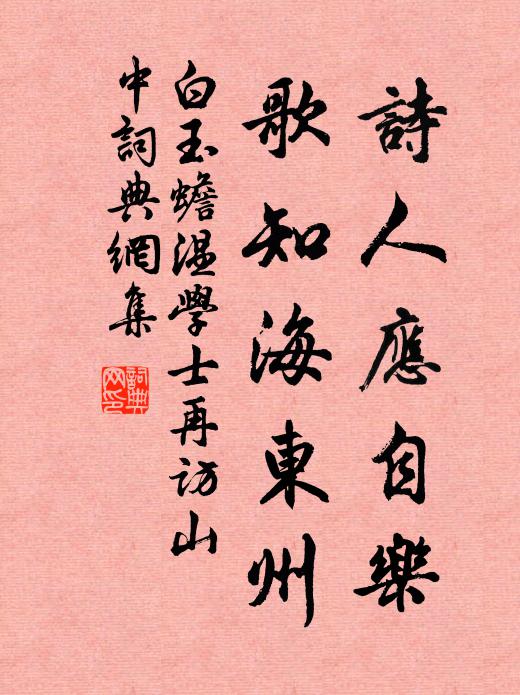 詩人應自樂
歌知海東州
白玉蟾溫學士再訪山
中詞典網集
詞典
网印